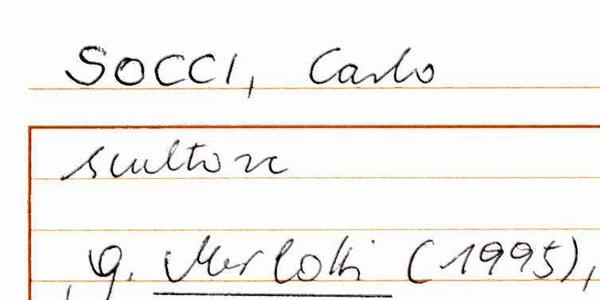 SOCCI, Carlo
scultore
g. Merlotti (1995),